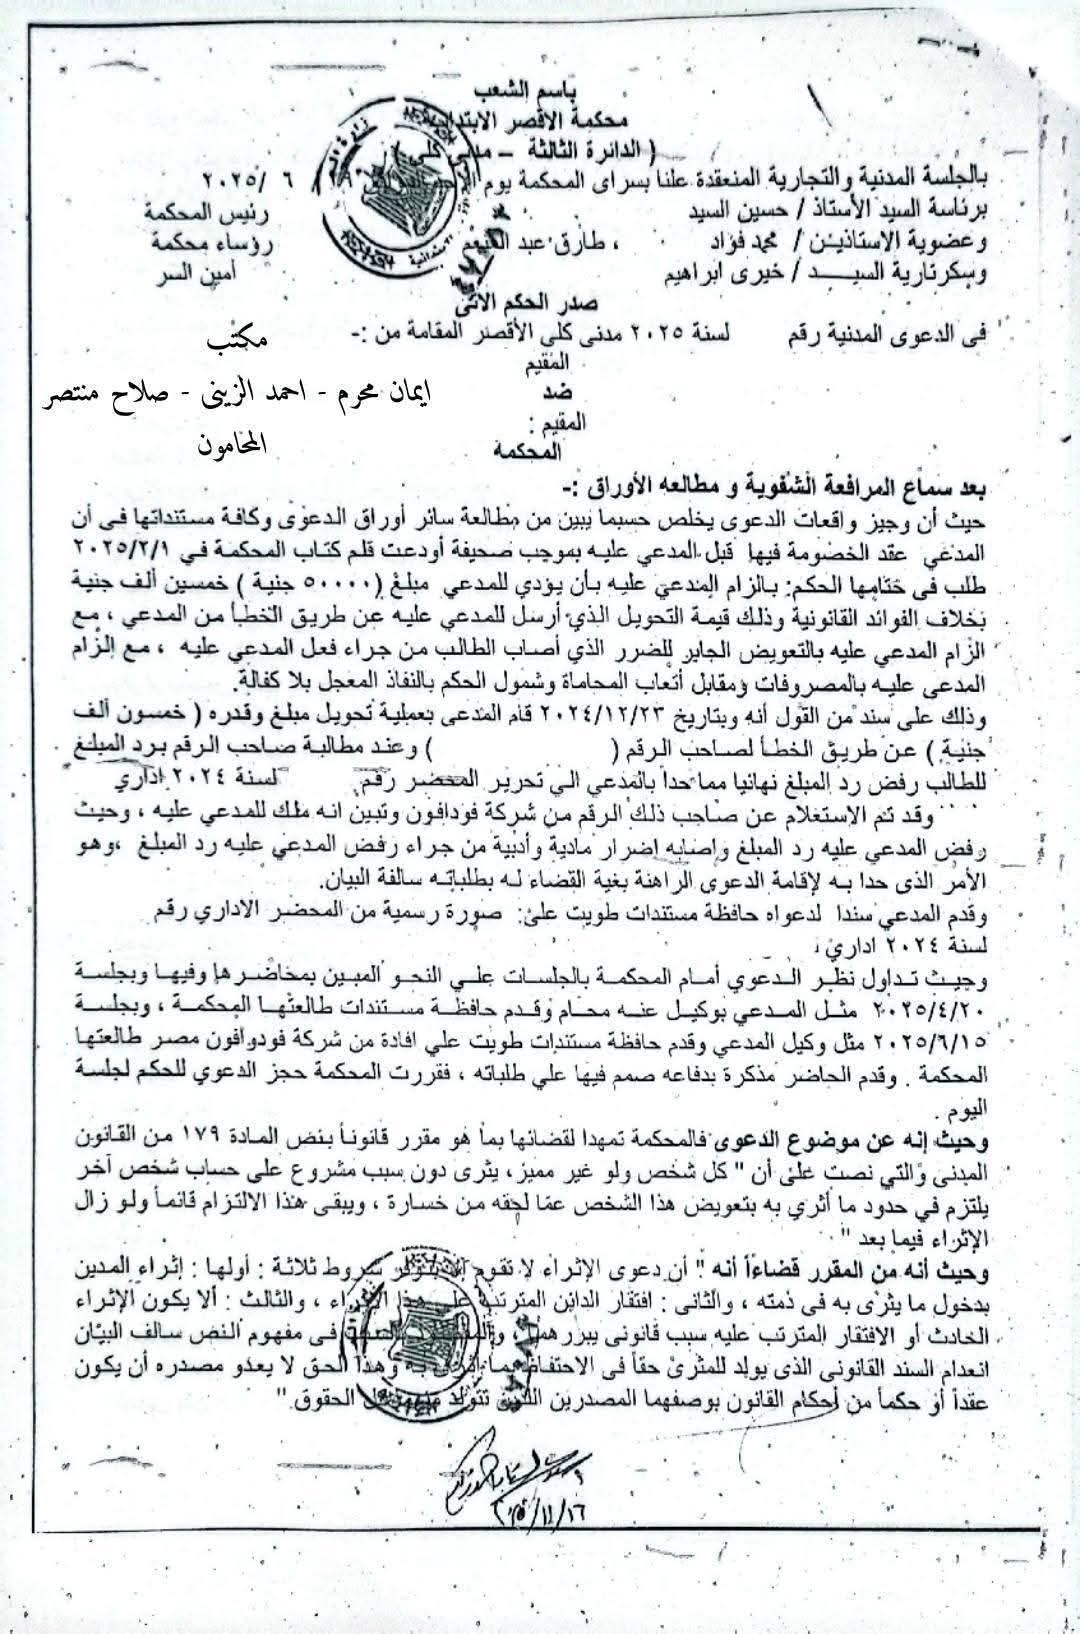 باسم الشعب
محكمة الاقصر الابتدائية
( الدائرة الثالثة – مدنى كلى )
بالجلسة المدنية والتجارية المنعقدة علنا بسراى المحكمة يوم ٦ /٢٠٢٥
برئاسة السيد الأستاذ / حسين السيد رئيس المحكمة
وعضوية الاستاذين / محمد فؤاد ، طارق عبد المنعم رؤساء محكمة
وسكرتارية السيـــد / خيرى ابراهيم أمين السر
صدر الحكم الاتى
فى الدعوى المدنية رقم لسنة ٢٠٢٥ مدنى كلى الأقصر المقامة من :-
مكتب
المقيم
ضد
ايمان محرم - احمد الزينى - صلاح منتصر
المقيم :
المحامون
المحكمة
بعد سماع المرافعة الشفوية و مطالعه الأوراق :-
حيث أن وجيز واقعات الدعوى يخلص حسبما يبين من مطالعة سائر أوراق الدعوى وكافة مستنداتها فى أن
المدعي عقد الخصومة فيها قبل المدعي عليه بموجب صحيفة أودعت قلم كتاب المحكمة في ٢٠٢٥/٢/١
طلب فى ختامها الحكم: بالزام المدعي عليه بأن يؤدي للمدعي مبلغ (٥٠٠٠٠ جنية ) خمسين ألف جنية
بخلاف الفوائد القانونية وذلك قيمة التحويل الذي أرسل للمدعي عليه عن طريق الخطأ من المدعي ، مع
الزام المدعي عليه بالتعويض الجابر للضرر الذي أصاب الطالب من جراء فعل المدعي عليه ، مع إلزام
المدعى عليه بالمصروفات ومقابل أتعاب المحاماة وشمول الحكم بالنفاذ المعجل بلا كفالة.
وذلك على سند من القول أنه وبتاريخ ٢٠٢٤/١٢/٢٣ قام المدعى بعملية تحويل مبلغ وقدره ( خمسون ألف
جنية ) عن طريق الخطأ لصاحب الرقم ( ) وعند مطالبة صاحب الرقم برد المبلغ
للطالب رفض رد المبلغ نهائيا مما حدا بالمدعي الي تحرير المحضر رقم لسنة ٢٠٢٤ إداري
وقد تم الاستعلام عن صاحب ذلك الرقم من شركة فودافون وتبين انه ملك للمدعي عليه ، وحيث
رفض المدعي عليه رد المبلغ واصابه اضرار مادية وأدبية من جراء رفض المدعي عليه رد المبلغ ،وهو
الأمر الذى حدا به لإقامة الدعوى الراهنة بغية القضاء له بطلباته سالفة البيان.
وقدم المدعي سندا لدعواه حافظة مستندات طويت على: صورة رسمية من المحضر الاداري رقم
لسنة ٢٠٢٤ اداري ،
وحيث تداول نظر الدعوي أمام المحكمة بالجلسات علي النحو المبين بمحاضرها وفيها وبجلسة
٢٠٢٥/٤/٢٠ مثل المدعي بوكيل عنه محام وقدم حافظة مستندات طالعتها المحكمة ، وبجلسة
٢٠٢٥/٦/١٥ مثل وكيل المدعي وقدم حافظة مستندات طويت علي افادة من شركة فودوافون مصر طالعتها
المحكمة . وقدم الحاضر مذكرة بدفاعه صمم فيها علي طلباته ، فقررت المحكمة حجز الدعوي للحكم لجلسة
اليوم .
وحيث إنه عن موضوع الدعوى فالمحكمة تمهدا لقضائها بما هو مقرر قانوناً بنص المادة ١٧٩ من القانون
المدنى والتي نصت على أن " كل شخص ولو غير مميز، يثرى دون سبب مشروع على حساب شخص آخر
يلتزم في حدود ما أثري به بتعويض هذا الشخص عما لحقه من خسارة ، ويبقى هذا الالتزام قائماً ولو زال
الإثراء فيما بعد "
وحيث أنه من المقرر قضاءاً أنه " أن دعوى الإثراء لا تقوم شروط ثلاثة : أولها : إثراء المدين
بدخول ما يثرى به فى ذمته ، والثانى : افتقار الدائن المترتب على هذا الإثراء ، والثالث : ألا يكون الإثراء
الحادث أو الافتقار المترتب عليه سبب قانونى يبررهما ، فى مفهوم النص سالف البيان
انعدام السند القانونى الذى يولد للمثرى حقاً فى الاحتفاظ بما أثرى به وهذا الحق لا يعدو مصدره أن يكون
عقداً أو حكماً من أحكام القانون بوصفهما المصدرين اللذين تتولد الحقوق "
٢٠٢٥/١١/١٦